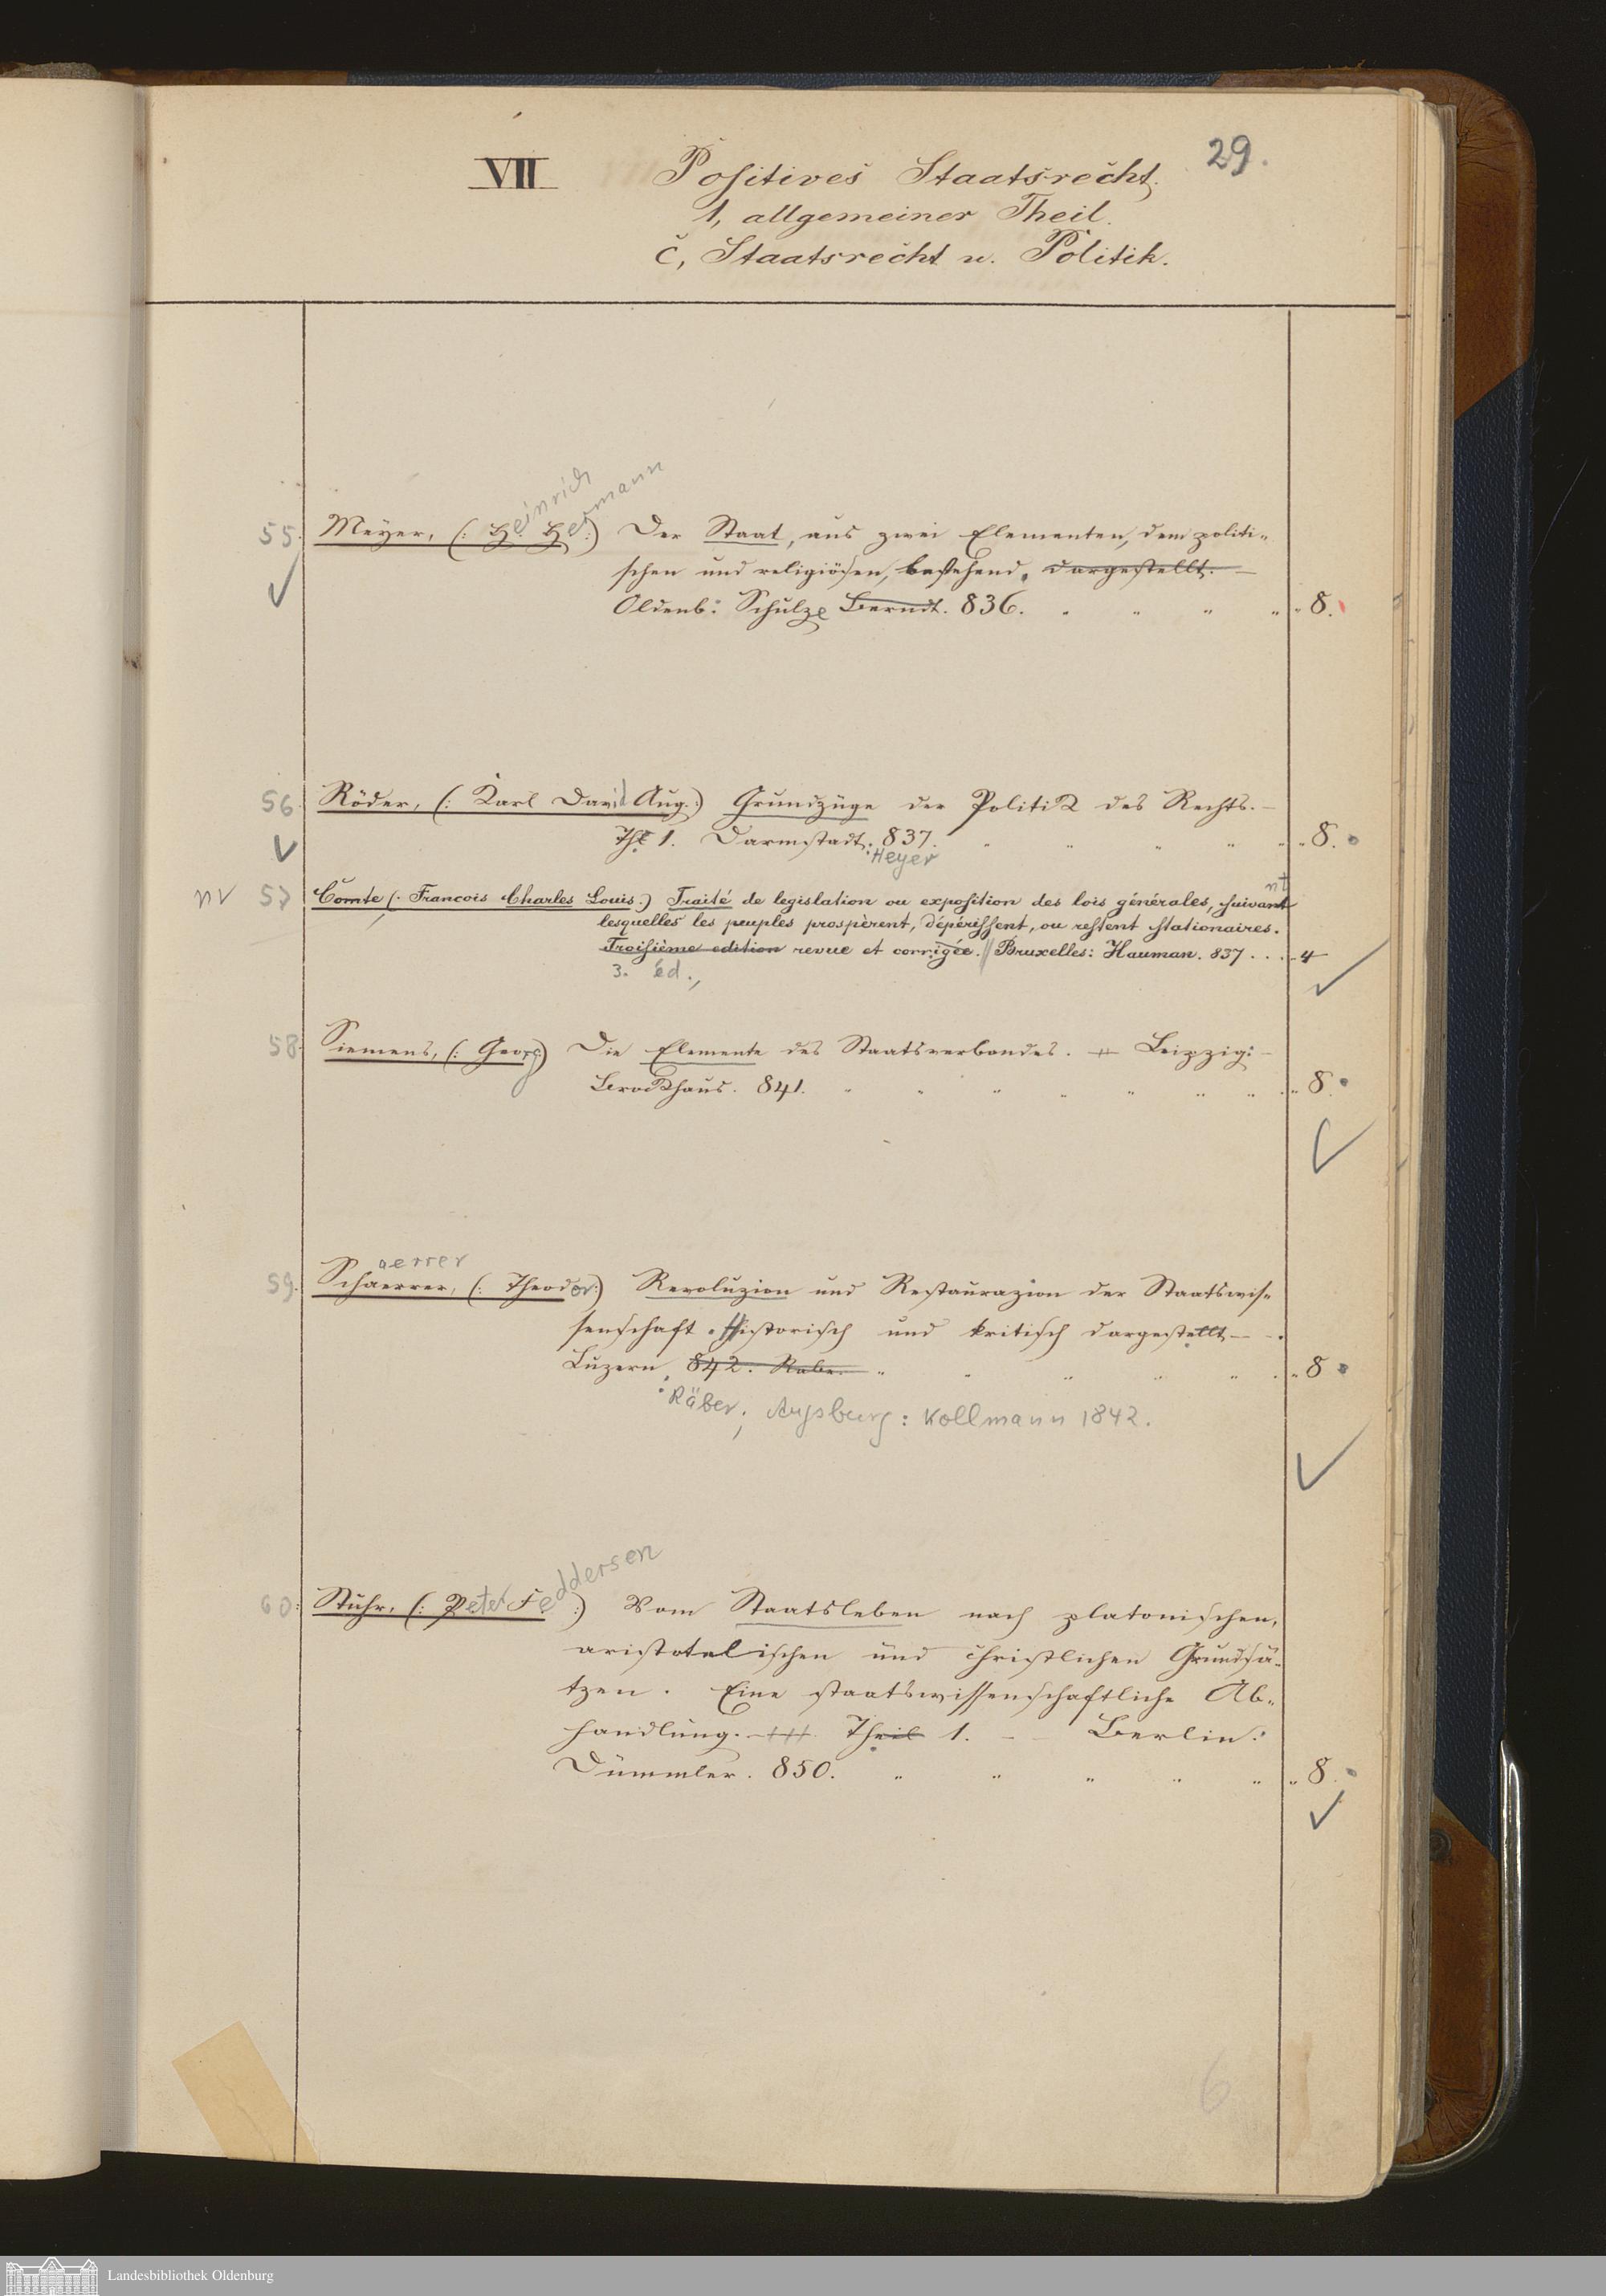 29.
VII Positives Staatsrecht.
1, allgemeiner Theil.
c, Staatsrecht u. Politik.
55. Meyer, (: Heinrich Hermann :) Der Staat, aus zwei Elementen, dem politi-
schen und religiösen, bestehend, dargestellt. —
Oldenb: Schulze Berndt. 836. " " " " " 8.
56. Röder, (: Karl David Aug. :) Grundzüge der Politik des Rechts. —
Thl 1. Darmstadt. 837. " " " " " 8.
: Heyer
nv 57 Comte (: Francois Charles Louis :) Traité de legislation ou exposition des lois générales, suivant
nt
lesquelles les peuples prospèrent, dépérissent, ou restent stationaires.
Troisième edition revue et corrigée. || Bruxelles: Hauman. 837 . . . 4
3. éd.,
58. Siemens, (: Georg :) Die Elemente des Staatsverbandes. — Leipzig: —
Brockhaus. 841. " " " " " " " 8.
aerrer
59. Schaerrer, (: Theodor :) Revoluzion und Restaurazion der Staatswis-
senschaft. Historisch und kritisch dargestellt — .
Luzern, 842. Rabe. " " " " " 8
: Räber; Augsburg: Kollmann 1842.
60: Stuhr, (: Peter Feddersen :) Vom Staatsleben nach platonischen,
aristotelischen und christlichen Grundsä-
tzen. Eine staatswissenschaftliche Ab-
handlung. Theil 1. — Berlin:
Dümmler. 850. " " " " " " 8.
6
Landesbibliothek Oldenburg